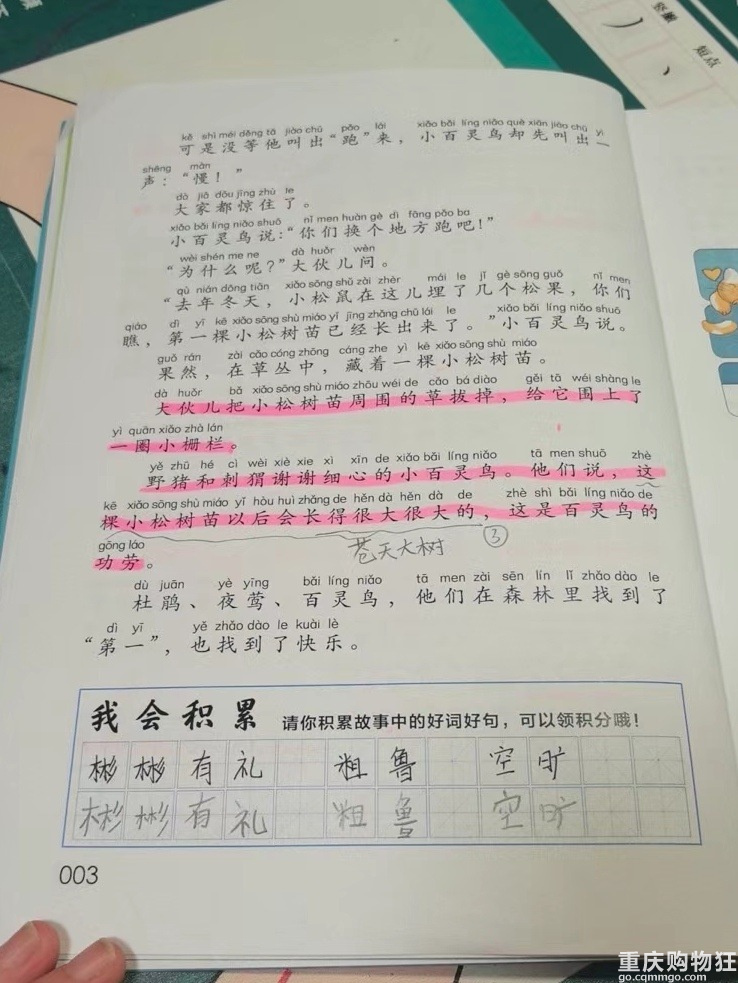 竖撇
短点
kě shì méi děng tā jiào chū pǎo lái xiǎo bǎi líng niǎo què xiān jiào chū yì
可是没等他叫出“跑”来，小百灵鸟却先叫出一
shēng màn
声：“慢！”
dà jiā dōu jīng zhù le
大家都惊住了。
xiǎo bǎi líng niǎo shuō nǐ men huàn gè dì fāng pǎo ba
小百灵鸟说：“你们换个地方跑吧！”
wèi shén me ne dà huǒr wèn
“为什么呢？”大伙儿问。
qù nián dōng tiān xiǎo sōng shǔ zài zhèr mái le jǐ gè sōng guǒ nǐ men
“去年冬天，小松鼠在这儿埋了几个松果，你们
qiáo dì yī kē xiǎo sōng shù miáo yǐ jīng zhǎng chū lái le xiǎo bǎi líng niǎo shuō
瞧，第一棵小松树苗已经长出来了。”小百灵鸟说。
guǒ rán zài cǎo cóng zhōng cáng zhe yì kē xiǎo sōng shù miáo
果然，在草丛中，藏着一棵小松树苗。
dà huǒr bǎ xiǎo sōng shù miáo zhōu wéi de cǎo bá diào gěi tā wéi shàng le
大伙儿把小松树苗周围的草拔掉，给它围上了
yì quān xiǎo zhà lán
一圈小栅栏。
yě zhū hé cì wèi xiè xie xì xīn de xiǎo bǎi líng niǎo tā men shuō zhè
野猪和刺猬谢谢细心的小百灵鸟。他们说，这
kē xiǎo sōng shù miáo yǐ hòu huì zhǎng de hěn dà hěn dà de zhè shì bǎi líng niǎo de
棵小松树苗以后会长得很大很大的，这是百灵鸟的
苍天大树 ③
gōng láo
功劳。
dù juān yè yīng bǎi líng niǎo tā men zài sēn lín lǐ zhǎo dào le
杜鹃、夜莺、百灵鸟，他们在森林里找到了
dì yī yě zhǎo dào le kuài lè
“第一”，也找到了快乐。
我会积累 请你积累故事中的好词好句，可以领积分哦！
彬彬有礼 粗鲁 空旷
彬彬有礼 粗鲁 空旷
003
重庆购物狂
go.cqmmgo.com